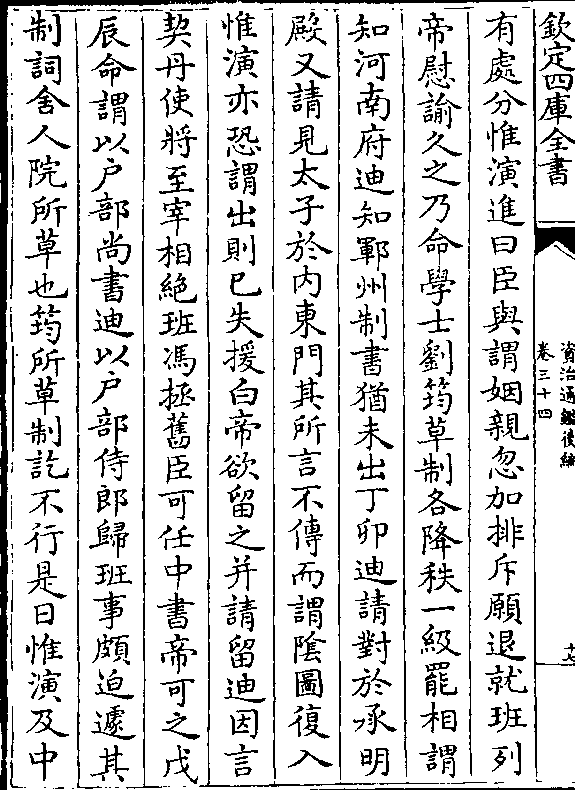 欽定四庫全書
資治通鑑後編
卷三十四
十七
有處分惟演進曰臣與謂姻親忽加排斥願退就班列
帝慰諭久之乃命學士劉筠草制各降秩一級罷相謂
知河南府迪知鄆州制書猶未出丁卯迪請對於承明
殿又請見太子於内東門其所言不傳而謂陰圖復入
惟演亦恐謂出則已失援白帝欲留之并請留迪因言
契丹使將至宰相絶班馮拯舊臣可任中書帝可之戊
辰命謂以户部尚書迪以户部侍郎歸班事頗迫遽其
制詞舍人院所草也筠所草制訖不行是日惟演及中